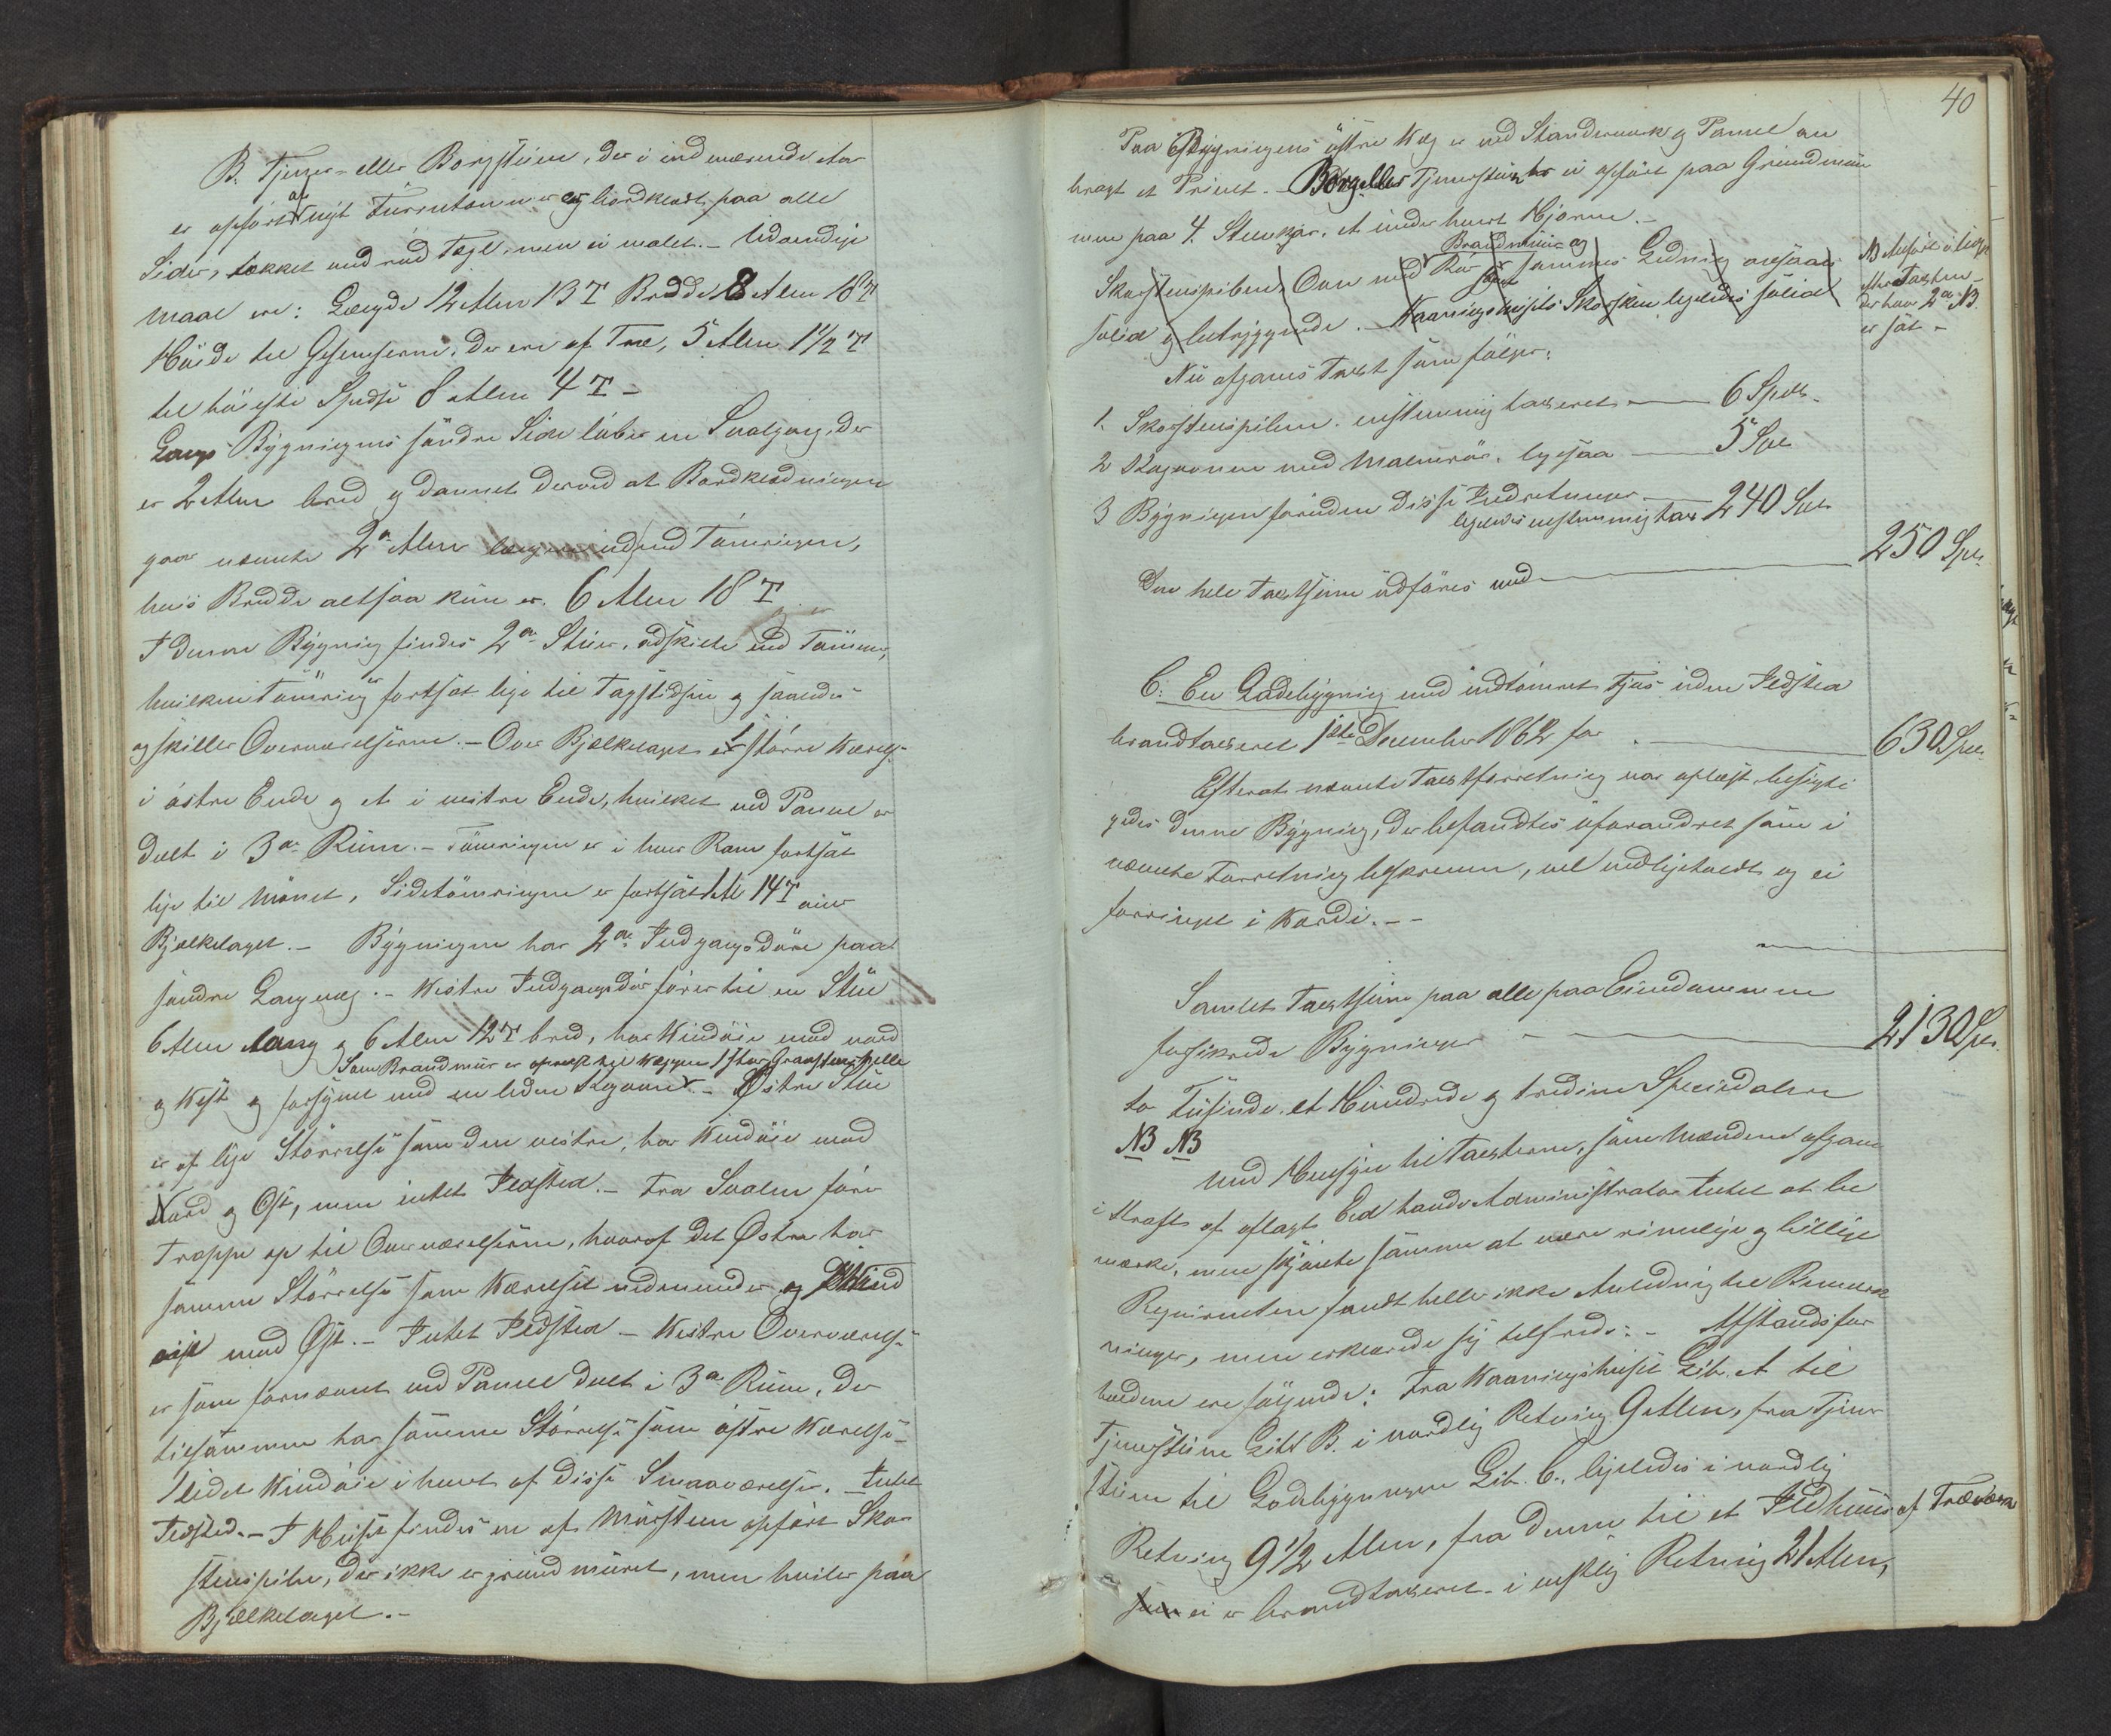 B. Tjener- eller Borgstuen, der i indeværende Aar
er opført af nyt Furutømmer og bordklædt paa alle
Sider, tækket med rød Tegl, men ei malet. - Udvendige
Maal ere: Længde 12 Alen 13 T Bredde 8 Alen 18 T
Høide til Gesemserne, der ere af Træ, 5 Alen 1 1/2 T
til høieste Spidse 8 Alen 4 T -
Langs Bygningens søndre Side løber en Svalgang, der
er 2 Alen bred og dannet derved at Bordklædningen
gaar nævnte 2 Alen længere ud end Tømringen,
hvis Bredde altsaa kun er 6 Alen 18 T
I denne Bygning findes 2de Stuer, adskilte ved Tømmer,
hvilken Tømring er fortsat lige til Tagspidsen og saaledes
og skiller Overværelserne. - Over Bjelkelaget er 1 større Værelse
i østre Ende og et i vestre Ende, hvilket ved Panel er
delt i 3de Rum. - Tømringen er i hver Ram fortsat
lige til Mønet, Sidetømringen er fortsat 1 Al 14 T over
Bjelkelaget. - Bygningen har 2de Indgangsdøre paa
søndre Langvæg. - Vestre Indgangsdør fører til en Stue
6 Alen lang og 6 Alen 12 T bred, har Vinduer mod nord
Som Brandmur er opreist ved Væggen 1 stor Graastenshelle
og Vest og forsynet med en liden Kogovn. - Østre Stue
er af lige Størrelse som den vestre, har Vinduer mod
Nord og Øst, men intet Ildsted. - Fra Svalen fører
Trappe op til Overværelserne, hvoraf det Østre har
samme Størrelse som Værelset nedenunder og 1 Vind
uie mod Øst. - Intet Ildsted - Vestre Overværelse
er som fornævnt ved Panel delt i 3de Rum, der
tilsammen har samme Størrelse som østre Værelse -
1 lidet Vindue i hvert af disse Smaaværelser. - Intet
Ildsted. - I Huset findes en af Mursteen opført Skor
stenspibe, der ikke er grundmuret, men hviler paa
Bjelkelaget. -
40
Paa Bygningens østre Væg er ved Standværk og Panel an
bragt et Privet. - Borg eller Tjenerstuen er ei opført paa Grundmuur
men paa 4 Steenkar, et under hvert Hjørne. -
Brandmuur og
Skorstenspiben, Ovn med Rør samt sammes Ledning ansaaes
solid og betryggende. - Vaaningshusets Skorsten ligeledes solid
NB
Taxten
der hvor 2de NB
er sat -
Nu afgaves Taxt som følger:
1. Skorstenspiben enstemmig taxeret - 6 Spdl.
2 Kogovnen med Malmrør, ligesaa - 5 Spd
3 Bygningen foruden disse Indretninger
ligeledes enstemmig tax 240 Spd.
Den hele Taxtsum udføres med - 250 Spd.
C: En Ladebygning med indtømret Fjøs uden Ildsted
brandtaxeret 1ste December 1862 for - 630 Spd.
Efterat nævnte Taxtforretning var oplæst besigti
gedes denne Bygning, der befandtes uforandret som i
nævnte Forretning beskreven, vel vedligeholdt og ei
forringet i Værdi. - -
Samlet Taxtsum paa alle paa Eiendommen
forsikrede Bygninger - 2130 Spd.
to Tusinde et Hundrede og tredive Speciedaler
NB NB
Med Hensyn til Taxterne, som Mændene afgave
i Kraft af aflagt Eed havde Administrator Intet at be
mærke, men skjønte samme at være rimelige og billige
Reqvirenten fandt heller ikke Anledning til Bemærk
ninger, men erklærede sig tilfreds. - Afstandsfor
holdene ere følgende: Fra Vaaningshuset Litr. A til
Tjenerstuen Litt B. i nordlig Retning 9 Alen, fra Tjener
stuen til Ladebygningen Lit. C., ligeledes i nordlig
Retning 9 1/2 Alen, fra denne til et Ildhuus af Træværk
som ei er brandtaxeret - i vestlig Retning 21 Alen,